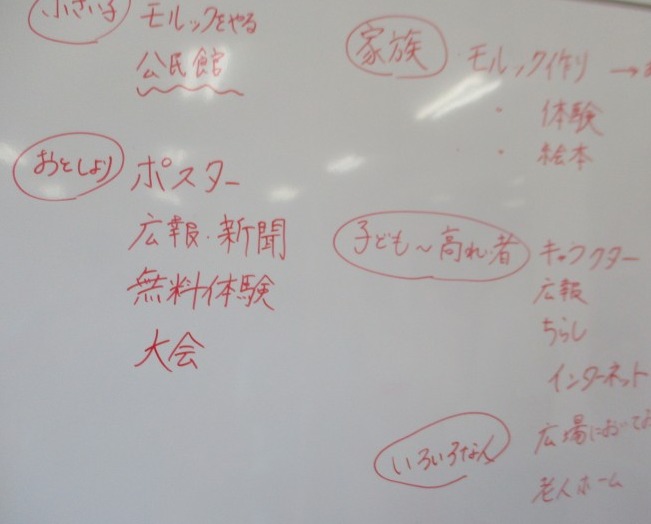 小さい子 モルックをやる
公民館
おとしより ポスター
広報・新聞
無料体験
大会
家族 ・モルック作り →
・ 体験
・ 絵本
子ども〜高れい者 キャラクター
広報
ちらし
インターネット
広場においてお
老人ホーム